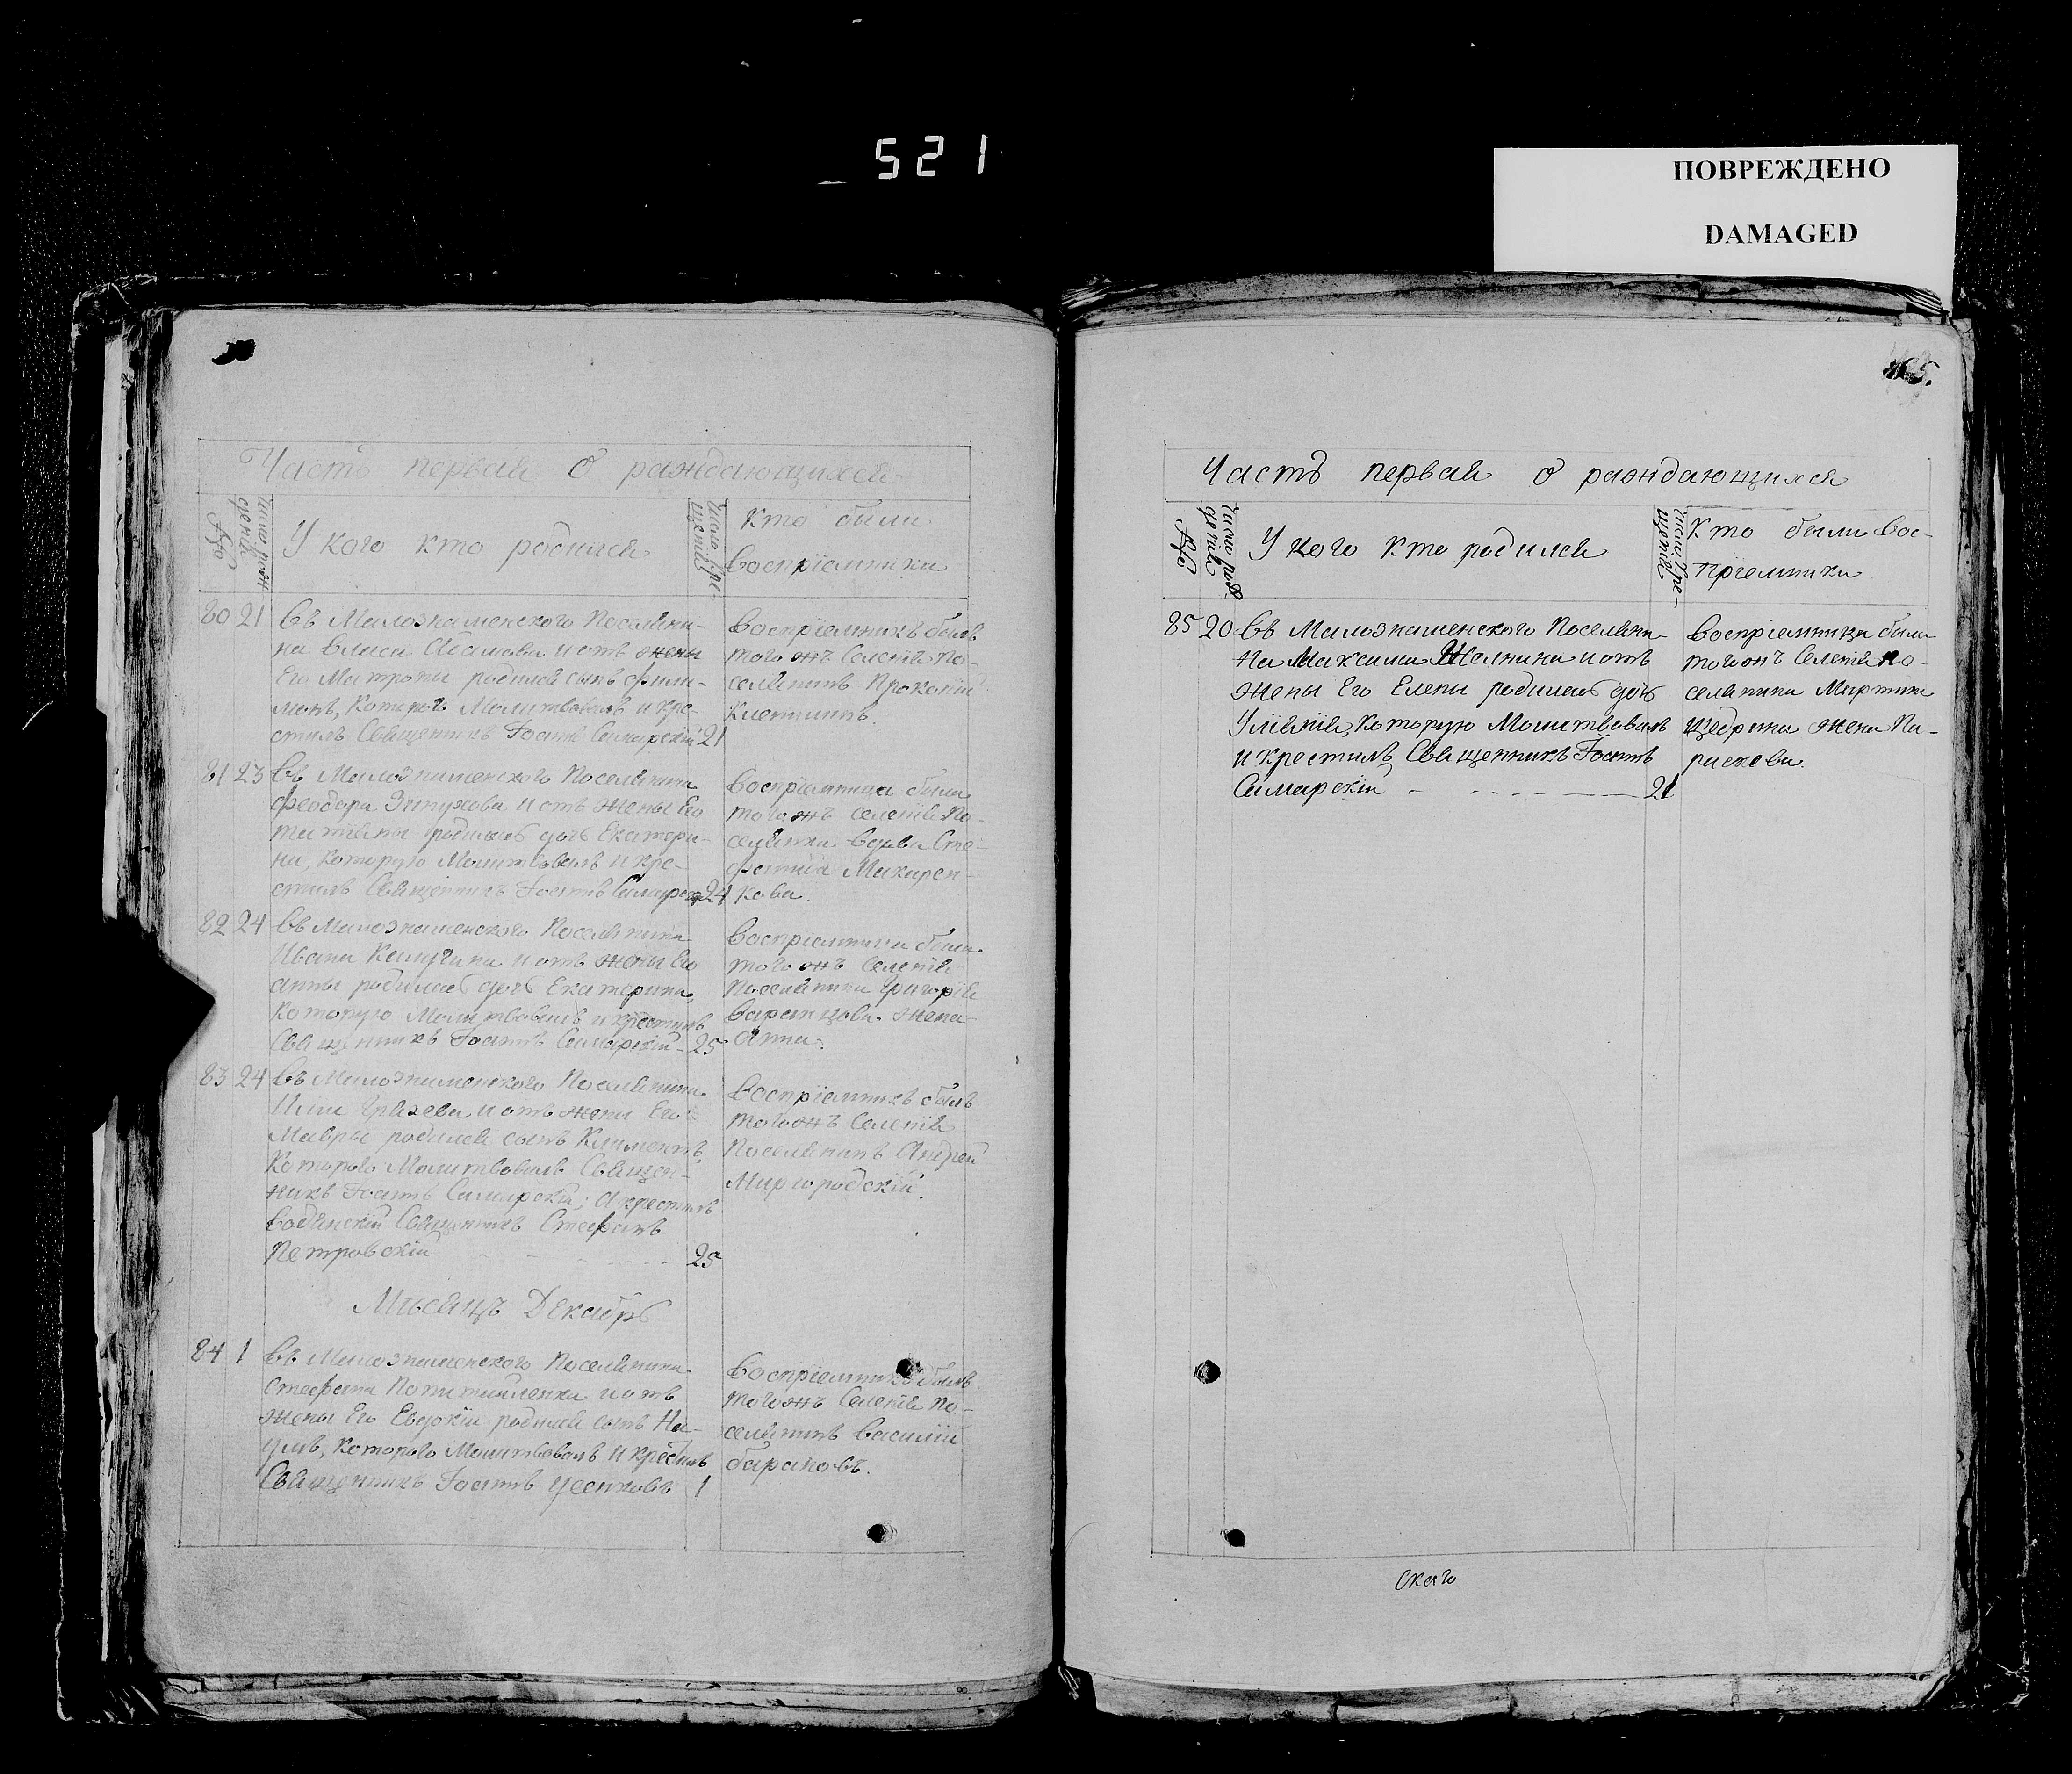 521
ПОВРЕЖДЕНО
DAMAGED
Часть первая о раждающихся
Число рож-
денiя
У кого кто родился
Число кре-
щенiя
Кто были
воспрiемники
80 21 въ Малознаменского Поселяни-
на Власа Абамова и отъ жены
Его Матроны родился сынъ Фили-
монъ, Которого Молитвовалъ и кре-
стилъ Священникъ Iоаннъ Самарскiй 21
воспрiемникъ былъ
тогожъ Селенiя По-
селянинъ Прокофiй
81 23 въ Малознаменского Поселянина
Феодора и отъ жены Его
Татiяны родилась дочь Екатери-
на, которую Молитвовалъ и кре-
стилъ Священникъ Iоаннъ Самарскiй 24
воспрiемница была
тогожъ селенiя По-
селянка вдова Сте-
фанида Макарен-
кова.
82 24 въ Малознаменского Поселянина
Ивана Калугина и отъ жены Его
анны родилась дочь Екатерина,
Которую Молитвовалъ и крестилъ
Священникъ Iоаннъ Самарскiй 25
воспрiемница была
тогожъ Селенiя
Поселянина Григорiя
жена
Анна.
83 24 въ Малознаменского Поселянина
Ильи и отъ жены Его
Мавры родился сынъ Климентъ,
Которого Молитвовалъ Священ-
никъ Iоаннъ Самарскiй; а крестилъ
Водянскiй Священникъ Стефанъ
Петровскiй 25
воспрiемникъ былъ
тогожъ Селенiя
Поселянинъ Андрей
Миргородскiй.
Мѣсяцъ Декабрь
84 1 въ Малознаменского Поселянина
Стефана и отъ
жены Его Евдокiи родился сынъ На-
умъ, Которого Молитвовалъ и крестилъ
Священникъ Iоаннъ 1
воспрiемникъ былъ
тогожъ Селенiя По-
селянинъ Василiй
барановъ.
Часть первая о раждающихся
Число рож-
денiя
У кого кто родился
Число кре-
щенiя
Кто были вос-
прiемники
85 20 въ Малознаменского Поселяни-
на Максима Шелкина и отъ
жены Его Елены родилась дочь
Улiянiя, которую Молитвовалъ
и крестилъ Священникъ Iоаннъ
Самарскiй 21
воспрiемница была
тогожъ Селенiя по-
селянина Мартина
Щедрина жена Па-
раскева.
Скаго